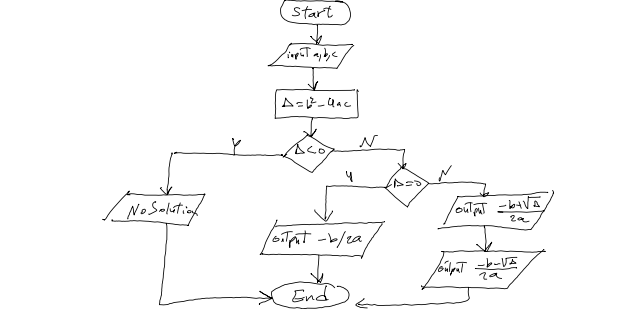 Start
input a,b,c
Δ=b²-4ac
Δ<0
Y
N
Δ=0
Y
N
No Solution
output -b/2a
output -b+√Δ/2a
output -b-√Δ/2a
End